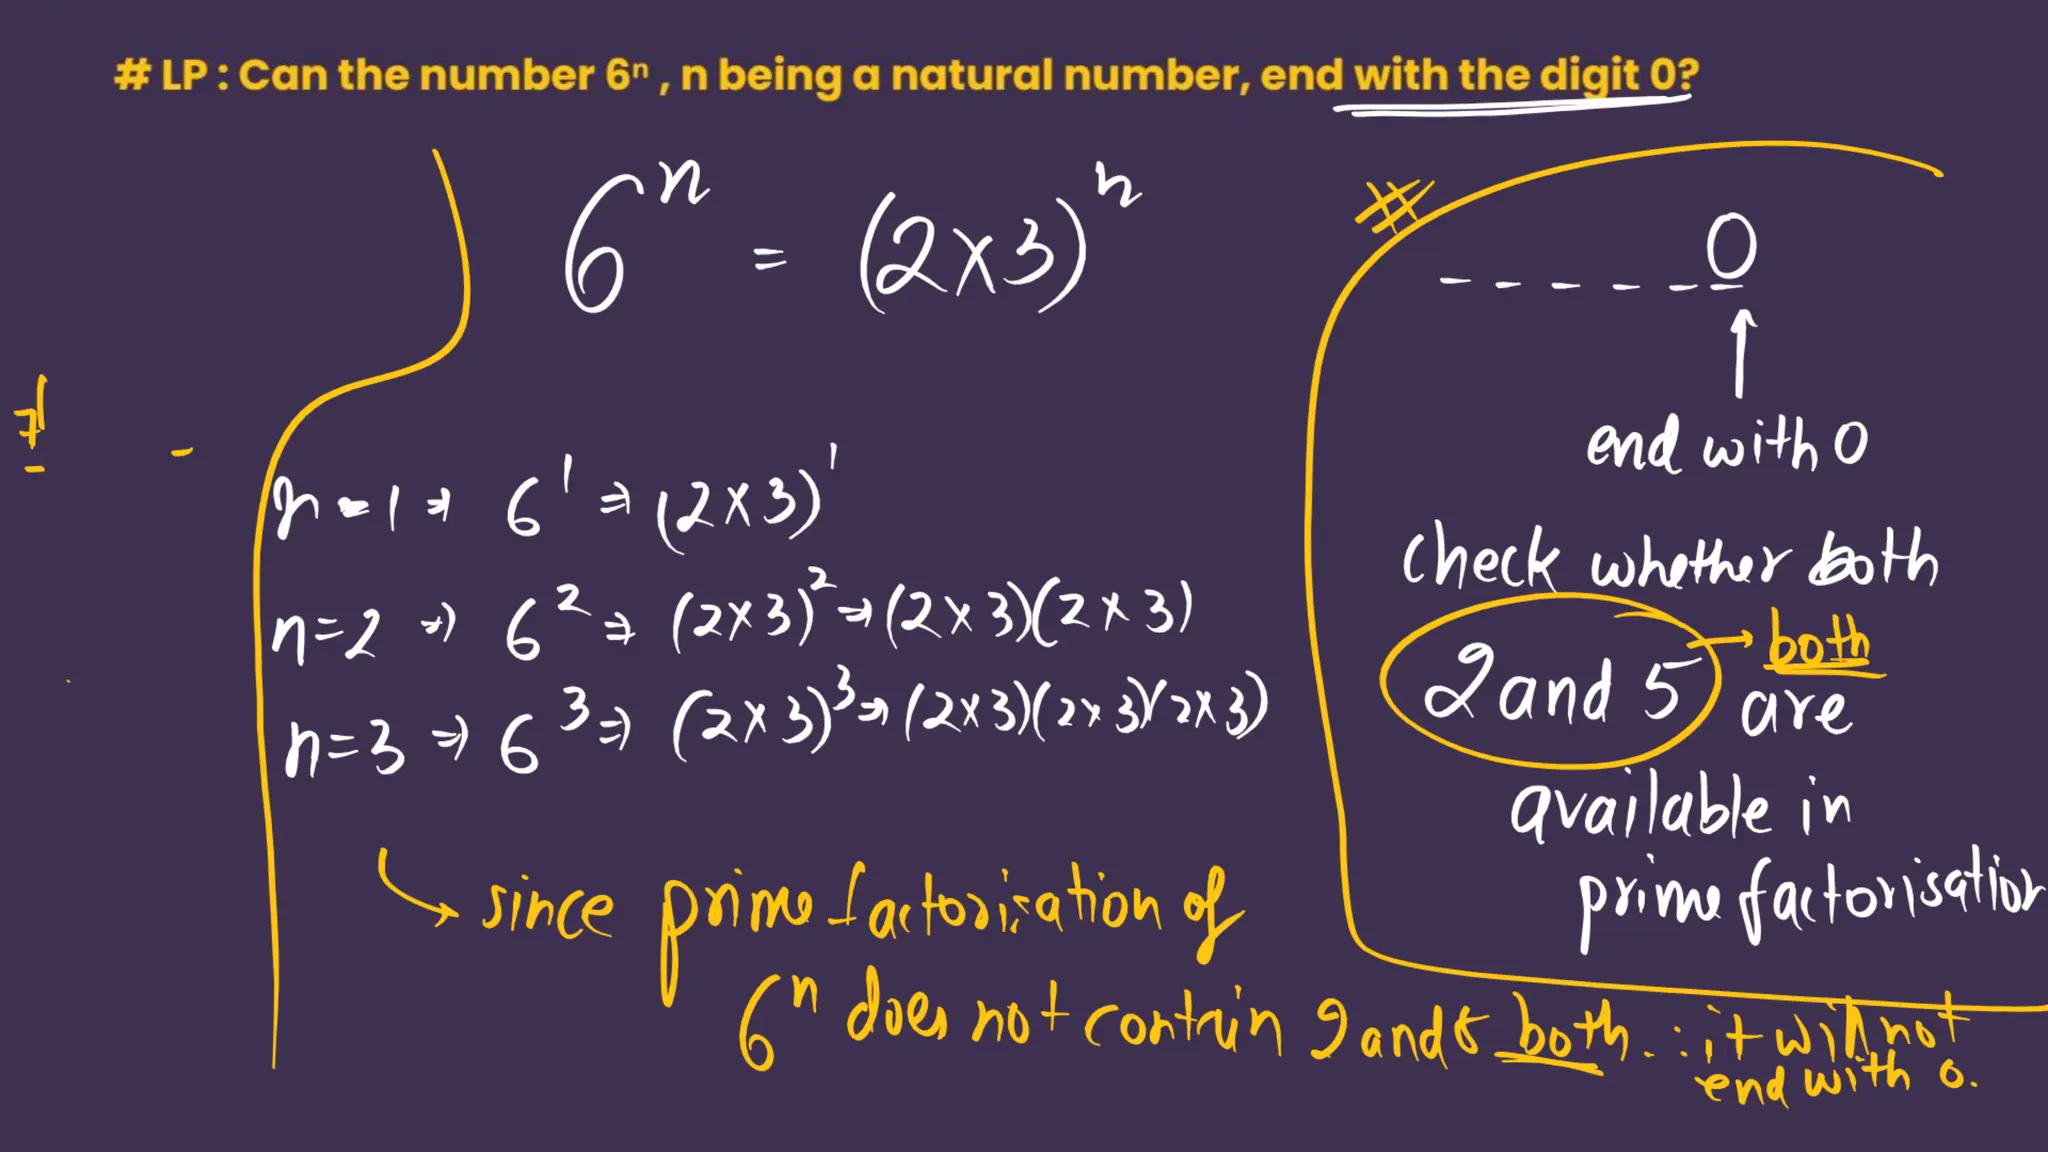 # LP : Can the number 6ⁿ , n being a natural number, end with the digit 0?
6ⁿ = (2×3)ⁿ
n=1 → 6¹ ⇒ (2×3)¹
n=2 → 6² ⇒ (2×3)² → (2×3)(2×3)
n=3 ⇒ 6³ ⇒ (2×3)³ → (2×3)(2×3)(2×3)
since prime factorisation of
6ⁿ does not contain 2 and 5 both. ∴ it will not
end with 0.
#
_ _ _ _ _ 0
end with 0
check whether both
2 and 5 → both
are
available in
prime factorisation